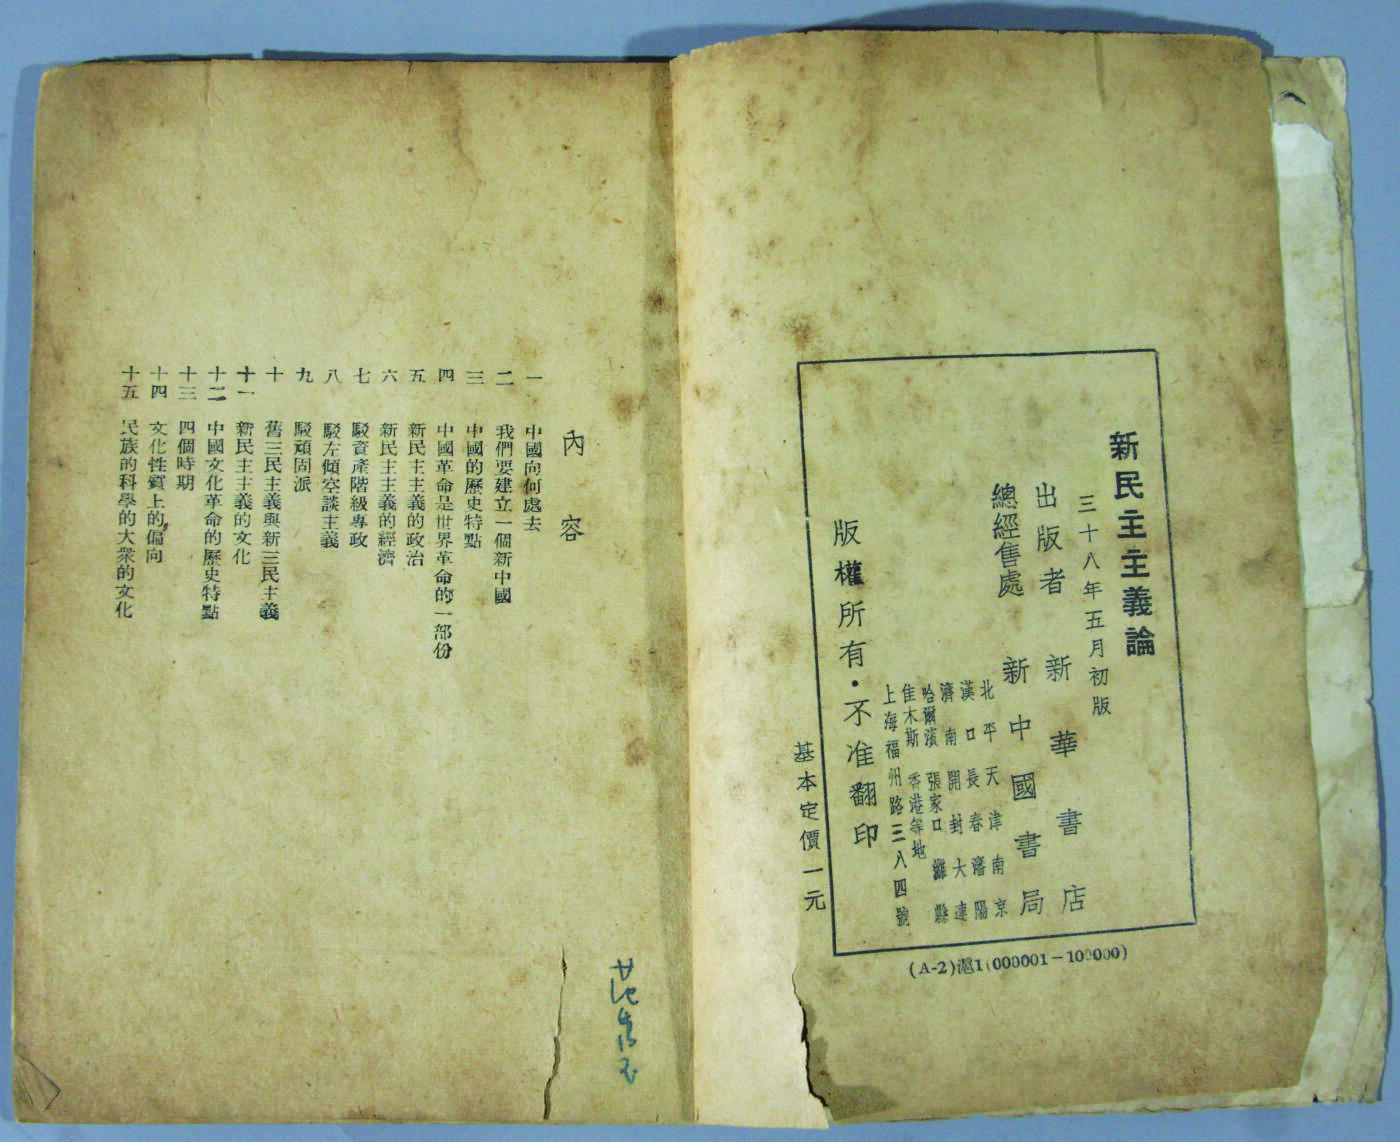 新民主主義論
三十八年五月初版
出版者 新華書店
總經售處 新中國書局
北平 天津 南京
漢口 長春 瀋陽
濟南 開封 大連
哈爾濱 張家口 濰縣
佳木斯 香港等地
上海福州路三八四號
版權所有·不准翻印
基本定價一元
(A-2)滬1(000001-100000)
內容
一 中國向何處去
二 我們要建立一個新中國
三 中國的歷史特點
四 中國革命是世界革命的一部份
五 新民主主義的政治
六 新民主主義的經濟
七 駁資產階級專政
八 駁左傾空談主義
九 駁頑固派
十 舊三民主義與新三民主義
十一 新民主主義的文化
十二 中國文化革命的歷史特點
十三 四個時期
十四 文化性質上的偏向
十五 民族的科學的大衆的文化